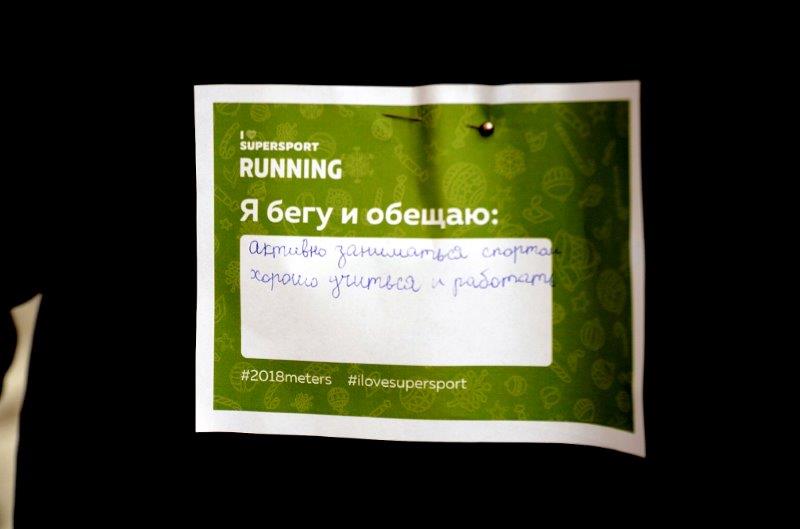 I
SUPERSPORT
RUNNING
Я бегу и обещаю:
активно заниматься спортом
хорошо учиться и работать
#2018meters #ilovesupersport